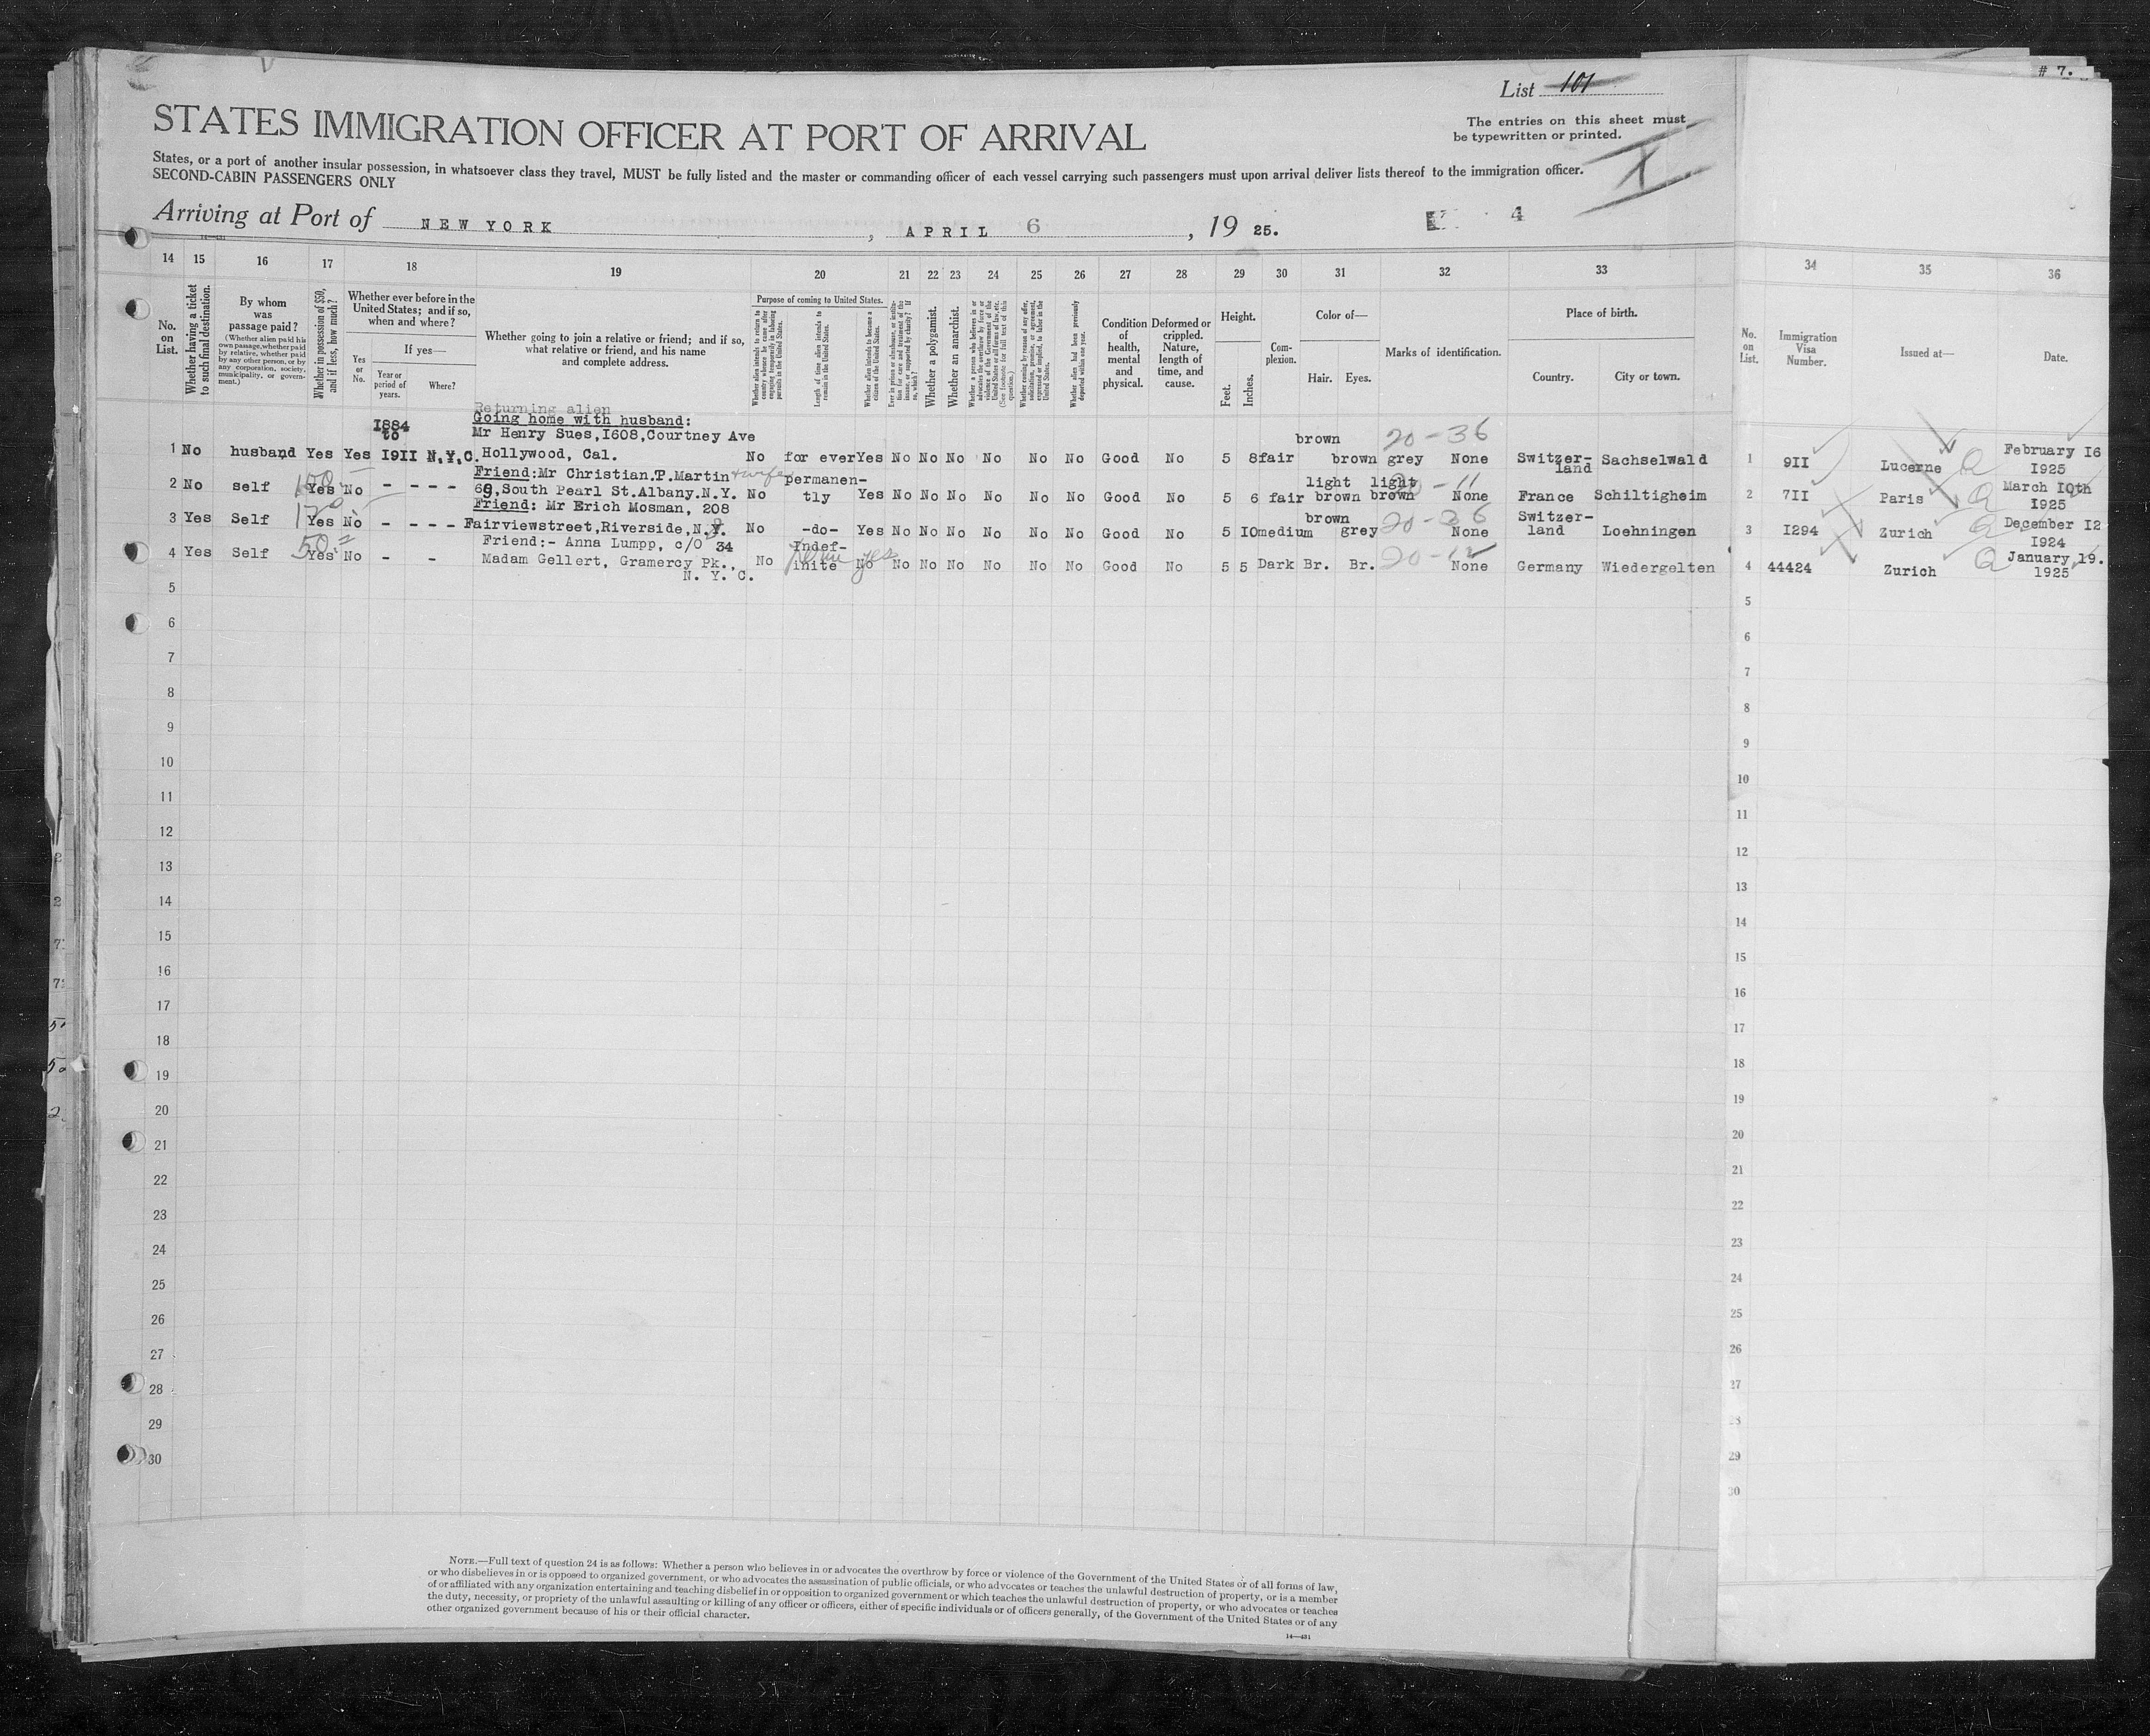 # 7.
List 101
The entries on this sheet must
be typewritten or printed.
STATES IMMIGRATION OFFICER AT PORT OF ARRIVAL
States, or a port of another insular possession, in whatsoever class they travel, MUST be fully listed and the master or commanding officer of each vessel carrying such passengers must upon arrival deliver lists thereof to the immigration officer.
SECOND-CABIN PASSENGERS ONLY
X
Arriving at Port of NEW YORK , APRIL 6 , 19 25.
4
14 15 16 17 18 19 20 21 22 23 24 25 26 27 28 29 30 31 32 33 34 35 36
No. on List.
Whether having a ticket to such final destination.
By whom was passage paid?
(Whether alien paid his own passage, whether paid by relative, whether paid by any other person, or by any corporation, society, municipality, or government.)
Whether in possession of $50, and if less, how much?
Whether ever before in the United States; and if so, when and where?
Yes or No.
If yes—
Year or period of years.
Where?
Whether going to join a relative or friend; and if so, what relative or friend, and his name and complete address.
Purpose of coming to United States.
Whether alien intends to return to country whence he came after engaging temporarily in laboring pursuits in the United States.
Length of time alien intends to remain in the United States.
Whether alien intends to become a citizen of the United States.
Ever in prison or almshouse, or institution for care and treatment of the insane, or supported by charity? If so, which?
Whether a polygamist.
Whether an anarchist.
Whether a person who believes in or advocates the overthrow by force or violence of the Government of the United States or all forms of law, etc. (See footnote for full text of this question.)
Whether coming by reason of any offer, solicitation, promise, or agreement, expressed or implied, to labor in the United States.
Whether alien had been previously deported within one year.
Condition of health, mental and physical.
Deformed or crippled. Nature, length of time, and cause.
Height.
Feet.
Inches.
Com-plexion.
Color of—
Hair.
Eyes.
Marks of identification.
Place of birth.
Country.
City or town.
No. on List.
Immigration Visa Number.
Issued at—
Date.
Returning alien
1884 to Going home with husband:
Mr Henry Sues,I608,Courtney Ave brown 20-36 February I6
1 No husband Yes Yes I9II N.Y.C. Hollywood, Cal. No for ever Yes No No No No No No Good No 5 8 fair brown grey None Switzer-land Sachselwald 1 9II Lucerne I925
Friend:Mr Christian.P.Martin + wife permanen- light light 20-11 March I0th
2 No self 150 Yes No - - - - 69,South Pearl St.Albany.N.Y. No tly Yes No No No No No No Good No 5 6 fair brown brown None France Schiltigheim 2 7II Paris I925
Friend: Mr Erich Mosman, 208 brown 20-36 Switzer- December I2
3 Yes Self Yes No - - - - Fairviewstreet,Riverside,N.Y. No -do- Yes No No No No No No Good No 5 I0 medium grey None land Loehningen 3 I294 Zurich I924
Friend:- Anna Lumpp, c/O 34 Indef- 20-12 January 19.
4 Yes Self 50 Yes No - - Madam Gellert, Gramercy Pk., No inite No yes No No No No No No Good No 5 5 Dark Br. Br. None Germany Wiedergelten 4 44424 Zurich 1925
N. Y. C.
5 5
6 6
7 7
8 8
9 9
10 10
11 11
12 12
13 13
14 14
15 15
16 16
17 17
18 18
19 19
20 20
21 21
22 22
23 23
24 24
25 25
26 26
27 27
28 28
29 29
30 30
NOTE.—Full text of question 24 is as follows: Whether a person who believes in or advocates the overthrow by force or violence of the Government of the United States or of all forms of law,
or who disbelieves in or is opposed to organized government, or who advocates the assassination of public officials, or who advocates or teaches the unlawful destruction of property, or is a member
of or affiliated with any organization entertaining and teaching disbelief in or opposition to organized government or which teaches the unlawful destruction of property, or who advocates or teaches
the duty, necessity, or propriety of the unlawful assaulting or killing of any officer or officers, either of specific individuals or of officers generally, of the Government of the United States or of any
other organized government because of his or their official character.
14—431